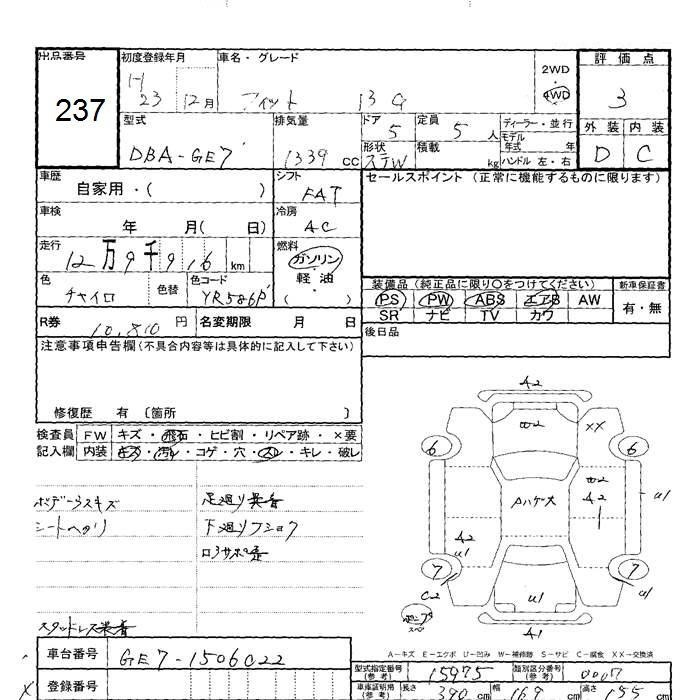 出品番号 初度登録年月 車名・グレード 2WD 評価点
237 H 23 12月 フィット 13G 4WD 3
型式 排気量 ドア 5 定員 5人 ディーラー・並行 外装 内装
DBA-GE7 1339 cc 形状 STW 積載 kg モデル年式 年 ハンドル 左・右 D C
車歴 自家用・( ) シフト FAT セールスポイント (正常に機能するものに限ります)
車検 年 月( 日) 冷房 AC
走行 12万9千916 km 燃料 ガソリン 軽油 ( )
色 チャイロ 色替 色コード YR586P 装備品 (純正品に限り○をつけてください) 新車保証書
PS PW ABS エアB AW 有・無
SR ナビ TV カワ
R券 10,810 円 名変期限 月 日 後日品
注意事項申告欄 (不具合内容等は具体的に記入して下さい)
修復歴 有 〔箇所 〕
検査員 FW キズ・飛石・ヒビ割・リペア跡・×要
記入欄 内装 キズ・汚れ・コゲ・穴・スレ・キレ・破レ
A2
XX
6 6
Aハゲ大
A2
U1
A2 U1
7 7
C2 U1
A1
ボデーラスキズ
シートヘタリ
足廻り
下廻り
スタッドレス
A-キズ E-エクボ U-凹み W-補修跡 S-サビ C-腐食 XX-交換済
車台番号 GE7-1506022
型式指定番号(参考) 15975 類別区分番号(参考) 0007
登録番号
車庫証明用(参考) 長さ 390 cm 幅 169 cm 高さ 155 cm